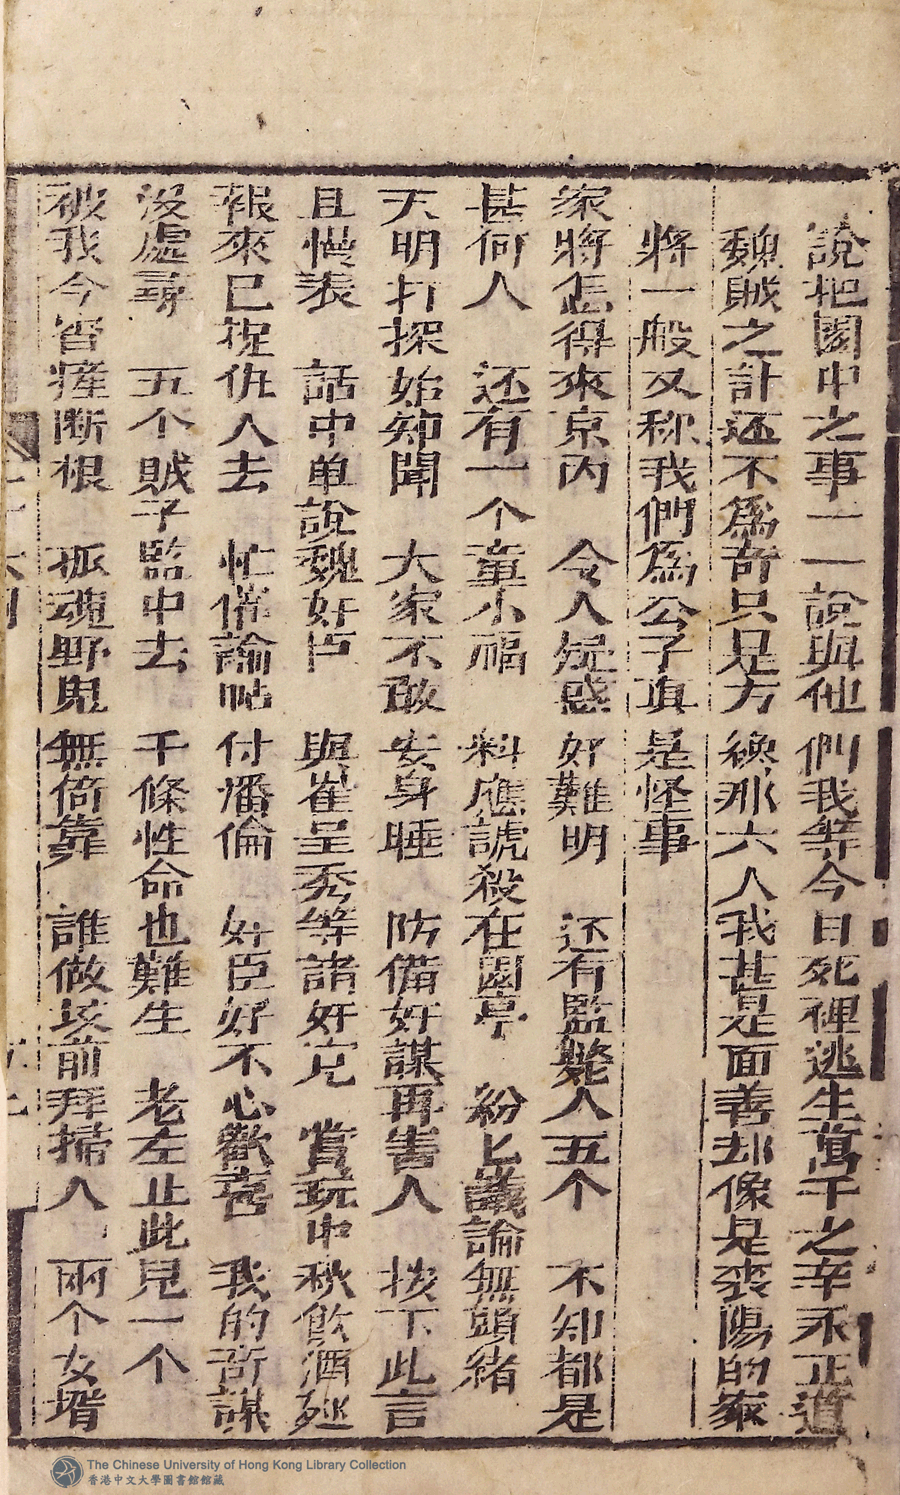 說把園中之事一一說與他們我等今日死裡逃生萬千之幸永正道
魏賊之計还不爲奇只是方纔那六人我甚是面善却像是襄陽的家
將一般又称我們爲公子真是怪事
家將怎得來京内 令人疑惑好難明 还有監斃人五个 不知都是
甚何人 还有一个童小福 料應諕殺在園亭 紛匕議論無頭緒
天明打探始知聞 大家不敢安身睡 防備奸謀再害人 按下此言
且慢表 話中单說魏奸臣 與崔呈秀等諸奸党 賞玩中秋飲酒筵
報來已捉仇人去 忙催諭帖付潘倫 奸臣好不心歡喜 我的奇謀
没處尋 五个賊子監中去 千條性命也難生 老左止此見一个
被我今宵 断根 孤魂野鬼無倚靠 誰做坟前拜掃人 兩个女壻
The Chinese University of Hong Kong Library Collection
香港中文大學圖書館館藏